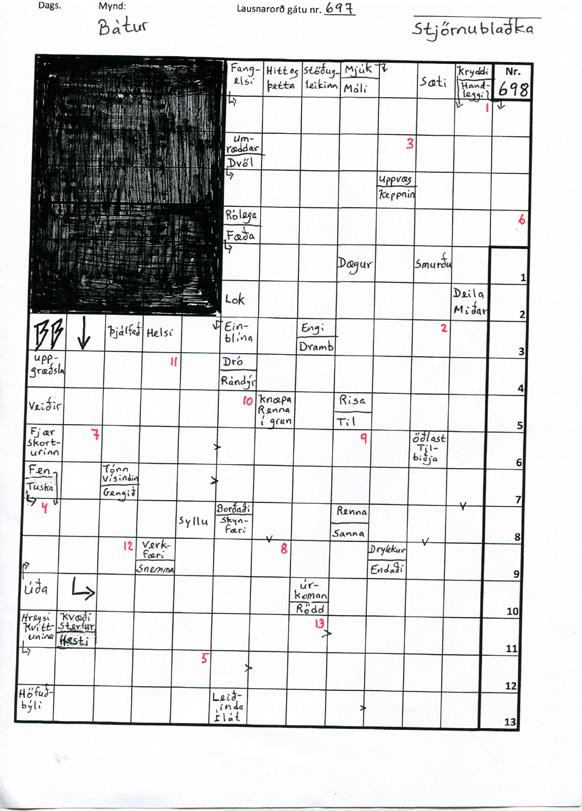 Dags. Mynd: Lausnarorð gátu nr. 697
Bátur Stjörnublaðka
Fang-
elsi
Hitteð
þetta
Stöðug-
leikinn
Mjúk
Máli
Sæti
Kryddi
Hand-
leggi
Nr.
698
1
Um-
ræddar
Dvöl
3
Uppvæg
Keppnin
Rólega
Fæða
6
Dægur
Smurðu
1
Lok
Deila
Miðar
2
Þjálfað
Helsi
Ein-
blína
Engi
Dramb
2
3
Upp-
græðsla
11
Dró
Rándýr
4
Veiðir
10
Knæpa
Renna
í grun
Risa
Til
5
Fjær
Skort-
urinn
7
9
Öðlast
Til-
biðja
6
Fen
Tuska
Tónn
Vísindin
Gengið
7
4
Syllu
Borðaði
Skyn-
færi
Renna
Sanna
8
12
Verk-
færi
Snemma
8
Drykkur
Endaði
9
Úða
Úr-
koman
Rödd
10
Hreysi
Kvitt-
unina
Kvæði
Stertur
Hesti
13
11
5
12
Höfuð-
býli
Leið-
inda
Ílát
13